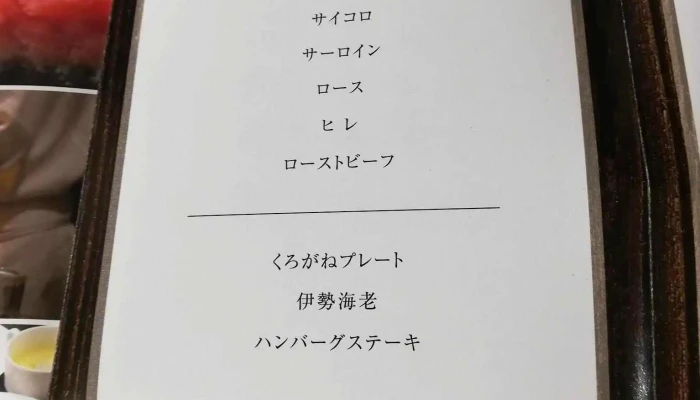 サイコロ
サーロイン
ロース
ヒレ
ローストビーフ
くろがねプレート
伊勢海老
ハンバーグステーキ